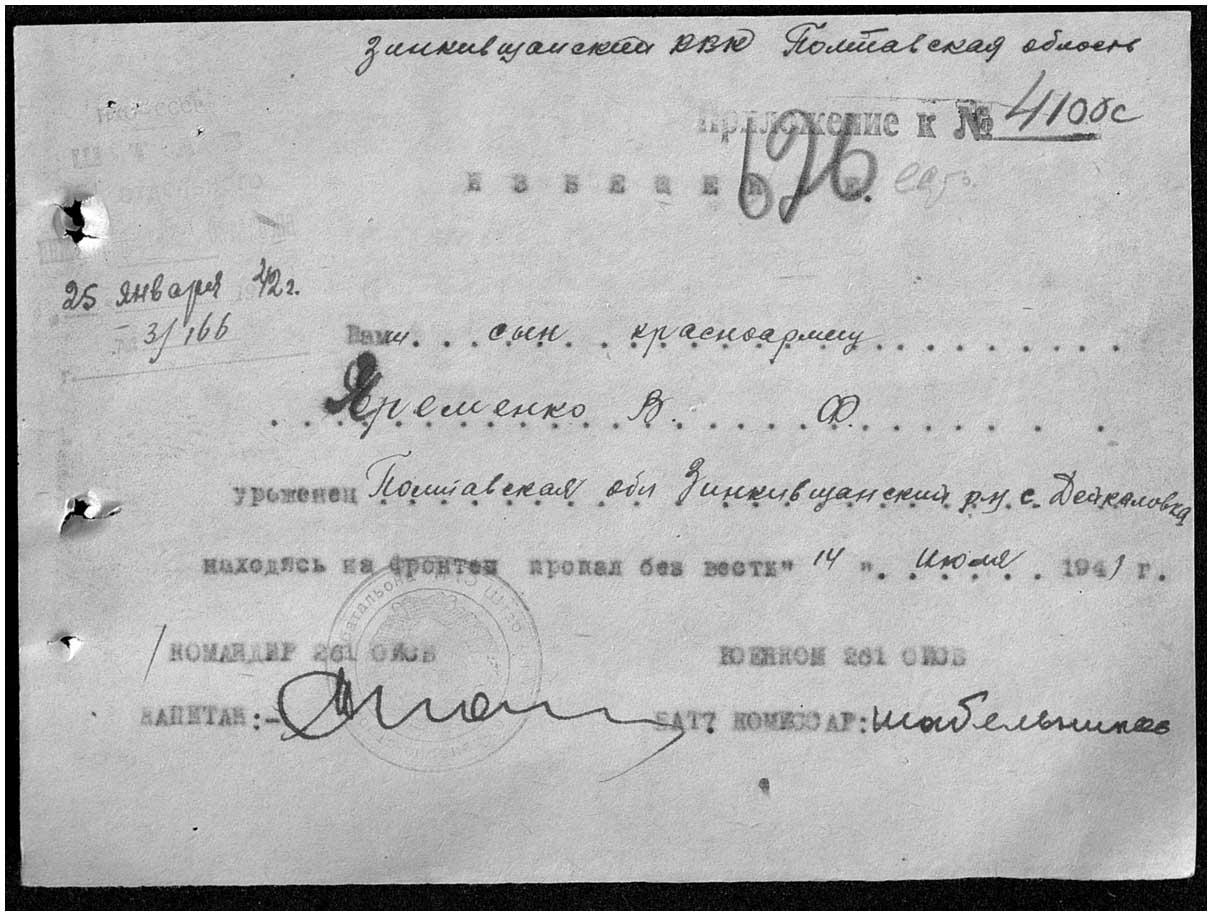 Зинкивщанский РВК Полтавская область
Приложение к № 410бс
626
ИЗВЕЩЕНИЕ.
25 января 42 г.
3/166
г.
Вами . сын . красноармеец
Яременко В. Ф.
уроженец Полтавская обл Зинкивщанский р-н. с. Дейкаловка
находясь на фронтеи пропал без вести " 14 " . июля . 1941 г.
КОМАНДИР 261 ОИСБ
ВОЕНКОМ 261 ОИСБ
КАПИТАН:-
БАТ. КОМИССАР: Шабельников